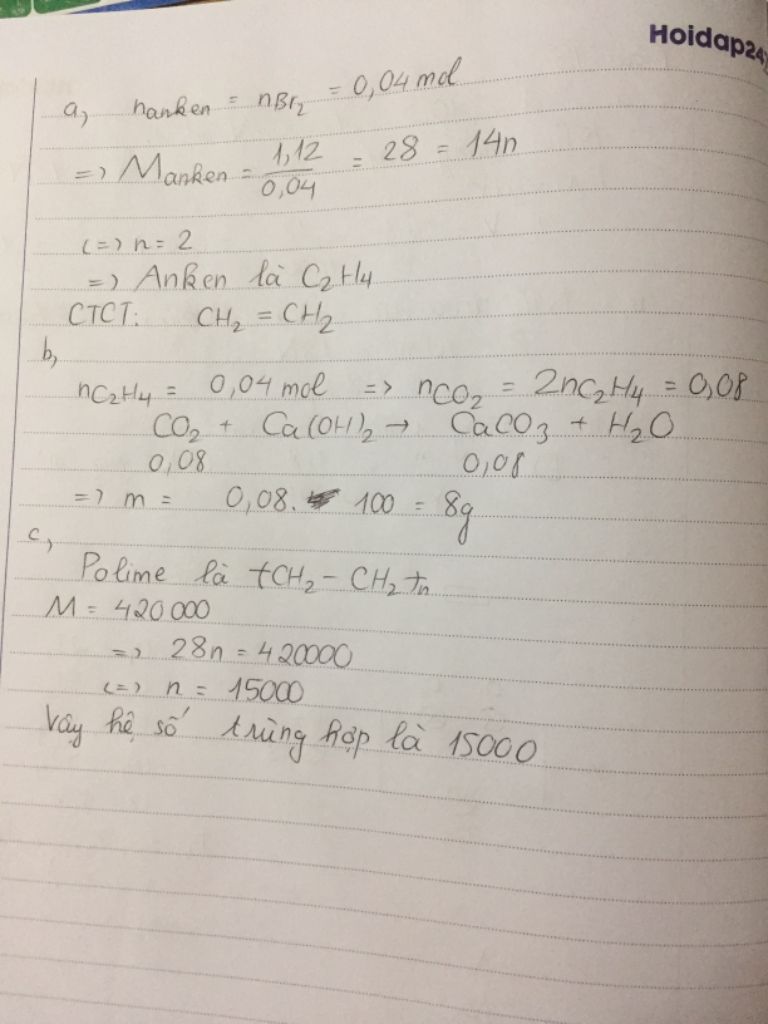 Hoidap247
a, nanken = nBr2 = 0,04 mol
=> Manken = 1,12 / 0,04 = 28 = 14n
(=) n = 2
=> Anken là C2H4
CTCT: CH2 = CH2
b,
nC2H4 = 0,04 mol => nCO2 = 2nC2H4 = 0,08
CO2 + Ca(OH)2 → CaCO3 + H2O
0,08 0,08
=> m = 0,08. 100 = 8g
c,
Polime là (CH2 - CH2)n
M = 420 000
=> 28n = 420000
(=) n = 15000
Vậy hệ số trùng hợp là 15000